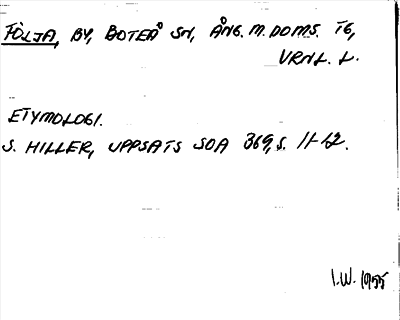 FÖLJA, BY, BOTEÅ SN, ÅNG. M. DOMS. TG,
VRNL. L.
ETYMOLOGI.
S. HILLER, UPPSATS SOA 369, S. 11-12.
I.W. 1955